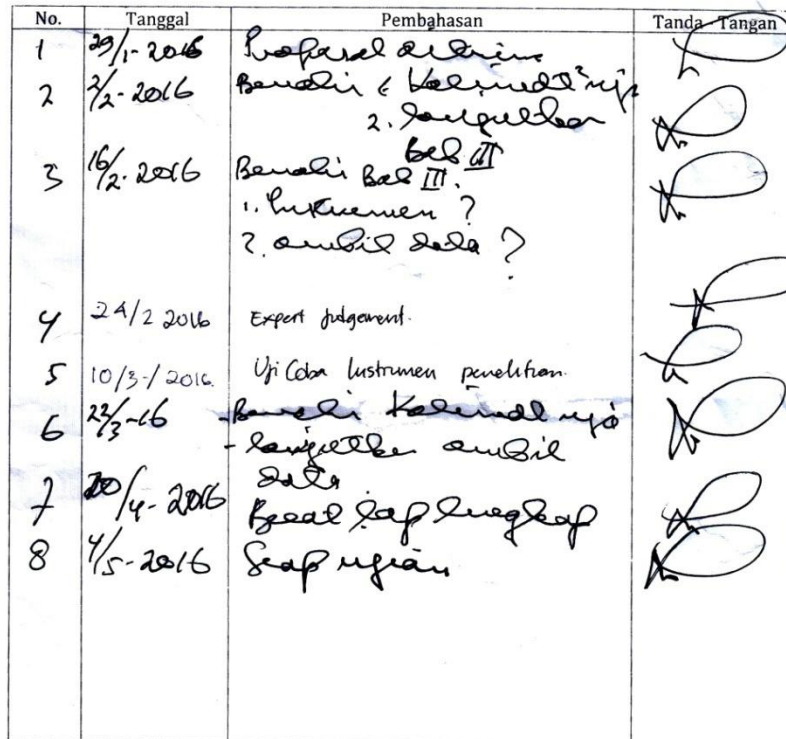 No. Tanggal Pembahasan Tanda Tangan
1 29/1-2016 Proposal
2 2/2-2016 Benahi
2. lanjutkan
Bab III
3 16/2-2016 Benahi Bab III.
1. Instrumen ?
2. ambil data ?
4 24/2 2016 Expert judgement.
5 10/3-/2016. Uji Coba Instrumen penelitian.
6 22/3-16 - Benahi
- lanjutkan ambil
data
7 20/4-2016 Buat lap lengkap
8 4/5-2016 Siap ujian